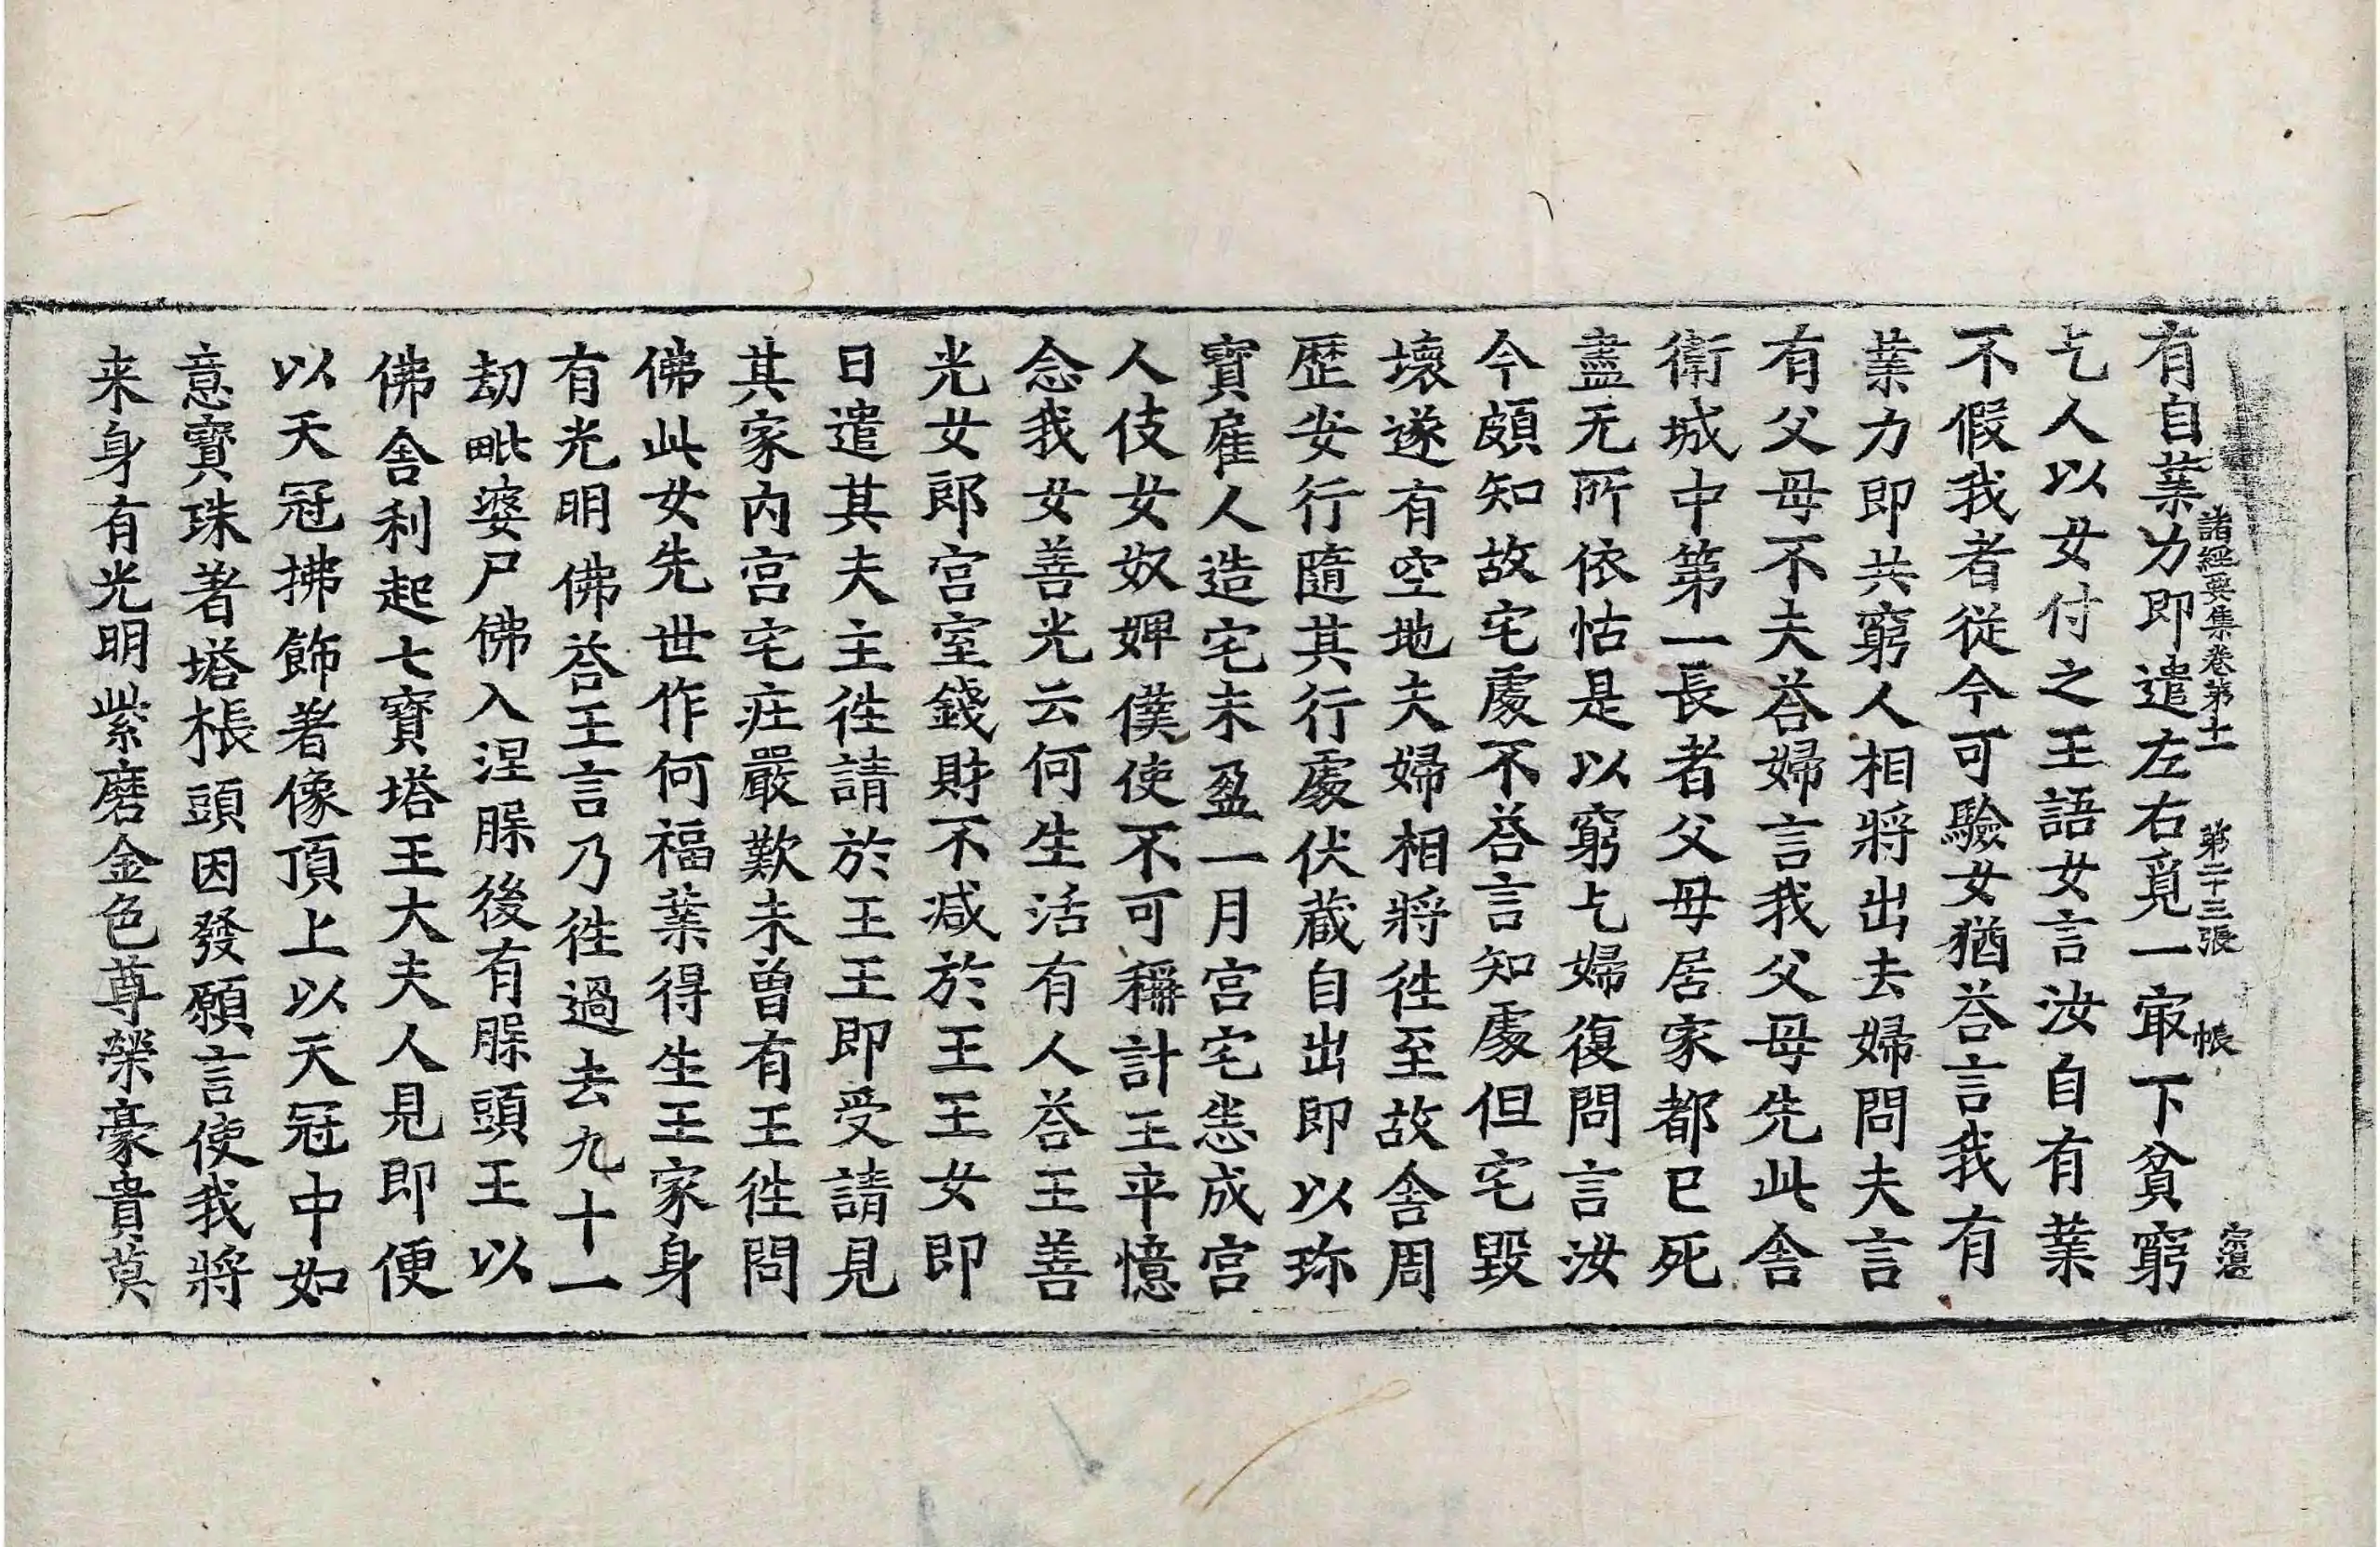 有自業力即遣左右覓一冣下貧窮
諸經要集卷第十一 第二十三張 帳
乞人以女付之王語女言汝自有業
不假我者従今可驗女猶荅言我有
業力即共窮人相將出去婦問夫言
有父母不夫荅婦言我父母先此舎
衛城中第一長者父母居家都已死
盡无所依怙是以窮乞婦復問言汝
今頗知故宅處不荅言知處但宅毀
壞遂有空地夫婦相將徃至故舎周
歷安行隨其行處伏蔵自出即以珎
寳雇人造宅未盈一月宫宅悉成宫
人伎女奴婢僕使不可稱計王卒憶
念我女善光云何生活有人荅王善
光女郎宫室錢財不减於王王女即
日遣其夫主徃請於王王即受請見
其家內宫宅庄嚴歎未曽有王徃問
佛此女先世作何福業得生王家身
有光明佛荅王言乃徃過去九十一
劫毗婆尸佛入涅槃後有槃頭王以
佛舎利起七寳塔王大夫人見即便
以天冠拂飾著像頂上以天冠中如
意寳珠著塔棖頭因發願言使我將
来身有光明紫磨金色尊榮豪貴莫